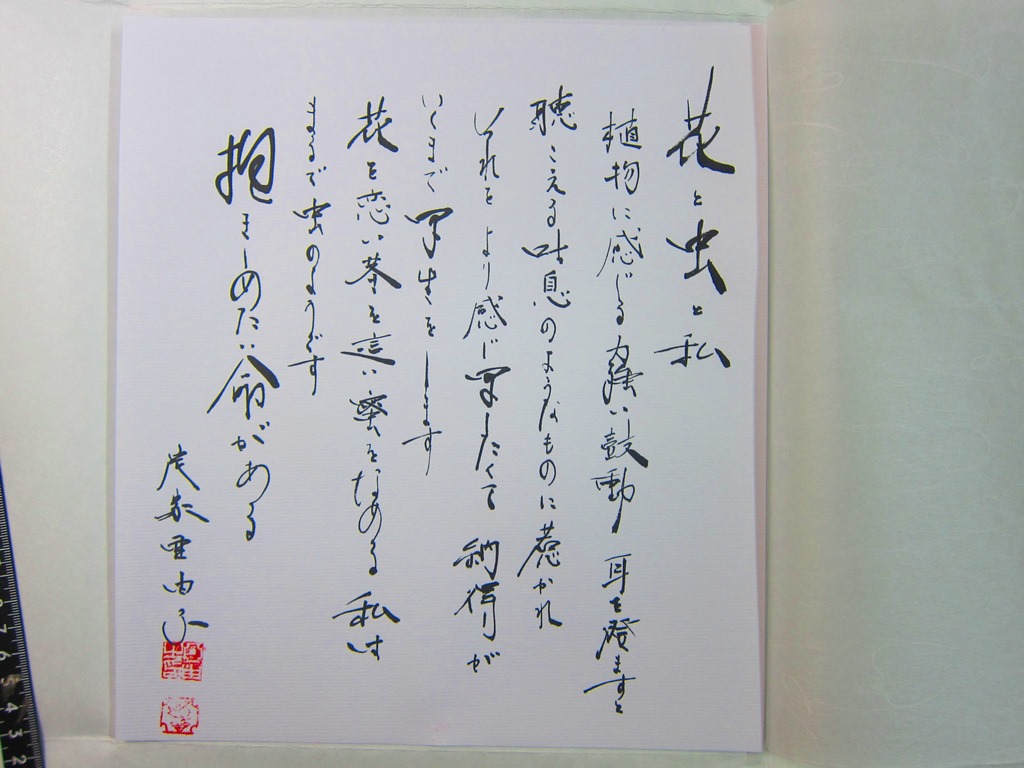 花と虫と私
植物に感じる強い鼓動 耳を澄ますと
聴こえる吐息のようなものに惹かれ
それをより感じ写したくて 納得が
いくまで写生をします
花を恋い 茎を這い 蜜をなめる 私は
まるで虫のようです
抱きしめたい命がある
亜由子